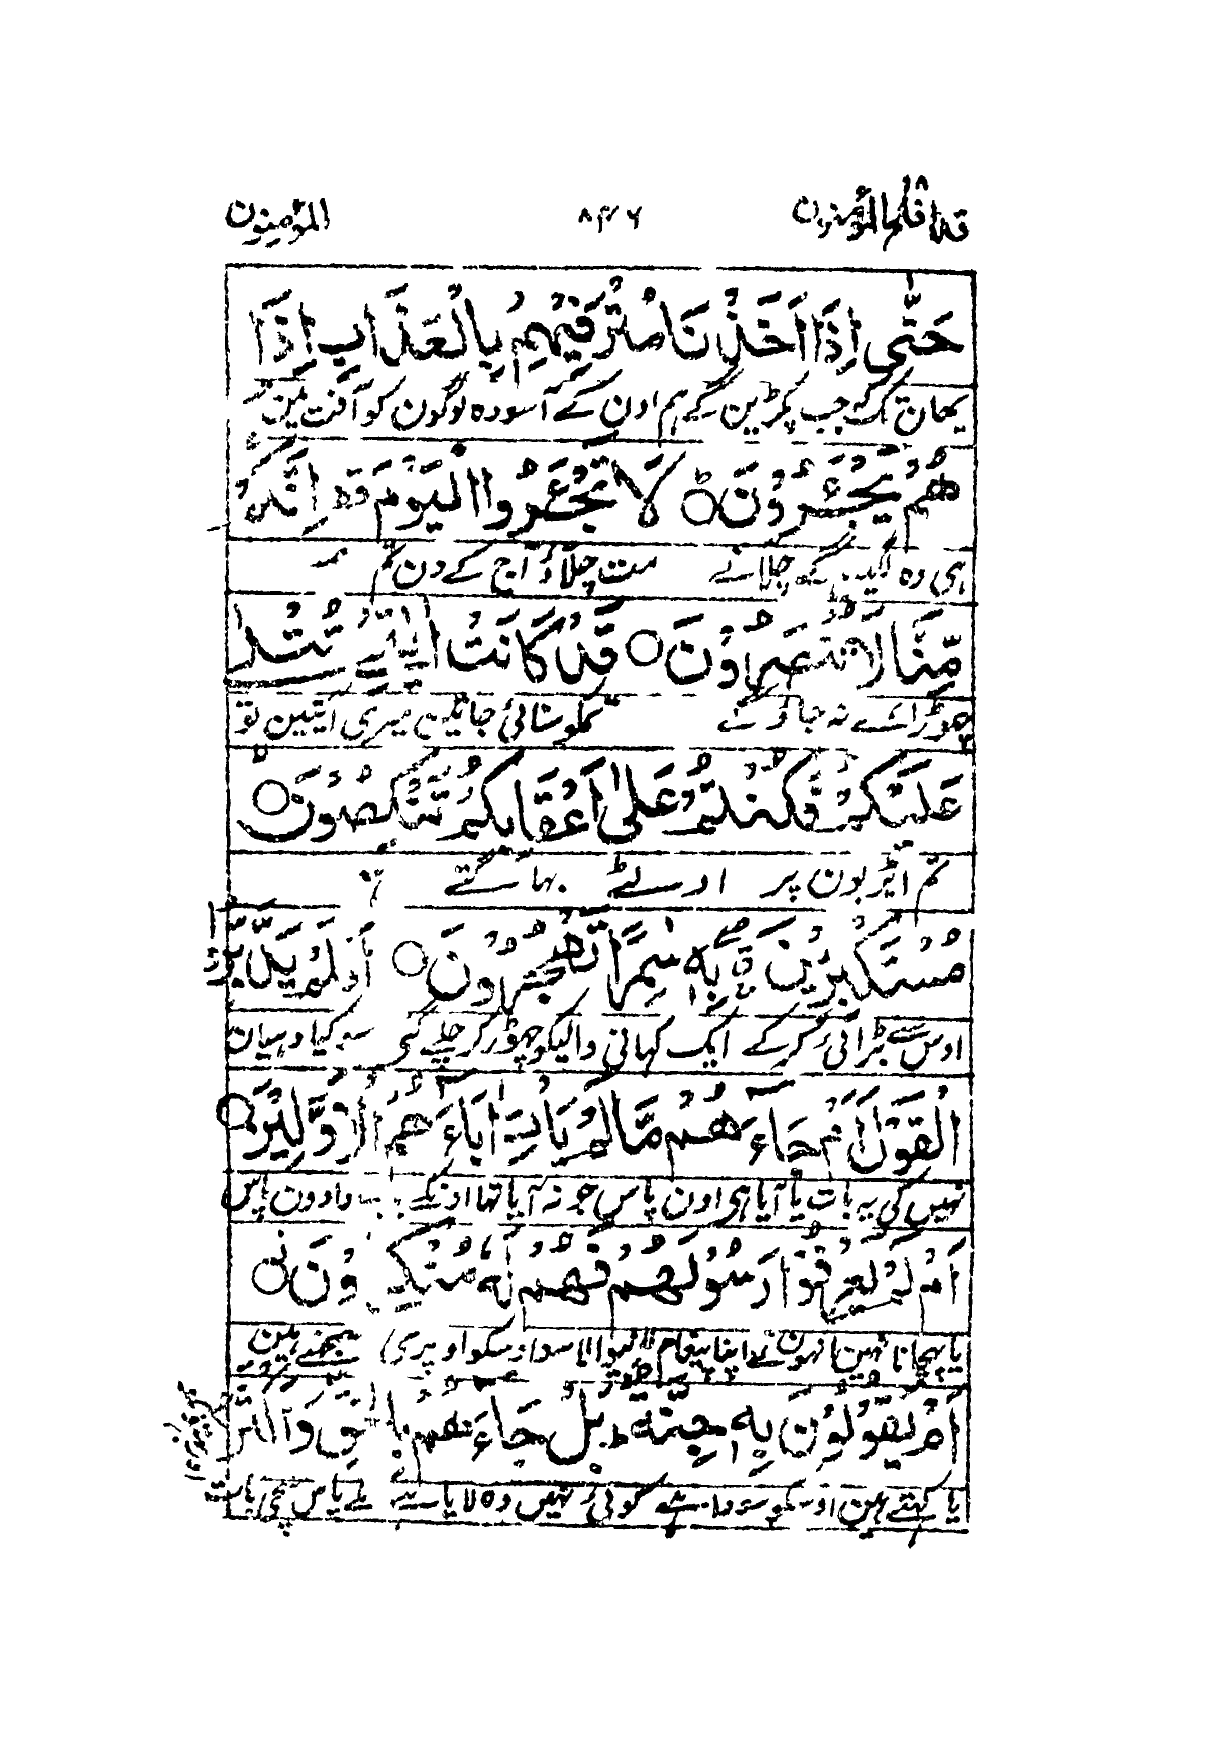 قد افلح المؤمنون ٨٣٦ المؤمنون
حَتّٰى اِذَا اَخَذْنَا مُتْرَفِيْهِمْ بِالْعَذَابِ اِذَا
یہانتک کہ جب پکڑین گے ہم اون کے آسودہ لوگون کو آفت مین
هُمْ يَجْـَٔرُوْنَ ؕ لَا تَجْـَٔرُوا الْيَوْمَ اِنَّكُمْ
ہی وہ لگین گے چلانے مت چلاؤ آج کے دن تم
مِّنَّا لَا تُنْصَرُوْنَ قَدْ كَانَتْ اٰيٰتِيْ تُتْلٰى
چھوڑائے نہ جاؤ گے تمکو سنائی جاتین میری آیتین تو
عَلَيْكُمْ فَكُنْتُمْ عَلٰۤى اَعْقَابِكُمْ تَنْكِصُوْنَ
تم ایڑیون پر اولٹے بھاگتے تھے
مُسْتَكْبِرِيْنَ بِهٖ سٰمِرًا تَهْجُرُوْنَ اَفَلَمْ يَدَّبَّرُوا
اوس سے بڑائی کر کر کے ایک کہانی والیکو چھوڑ کر چلے گئی سو کیا دہیان
الْقَوْلَ اَمْ جَآءَهُمْ مَّا لَمْ يَاْتِ اٰبَآءَهُمُ الْاَوَّلِيْنَ
نہین کی یہ بات یا آیا ہی اون پاس جو نہ آیا تھا اونکے دادون پاس
اَمْ لَمْ يَعْرِفُوْا رَسُوْلَهُمْ فَهُمْ لَهٗ مُنْكِرُوْنَ
یا پہچانا نہین انہون نے اپنا پیغام لانیوالا سو اوسکو اوپری سمجھتے ہین
اَمْ يَقُوْلُوْنَ بِهٖ جِنَّةٌ ؕ بَلْ جَآءَهُمْ بِالْحَقِّ وَاَكْثَرُ
یا کہتے ہین اوسکو سودا ہے کوئی نہین وہ لایا ہے پاس سچی بات